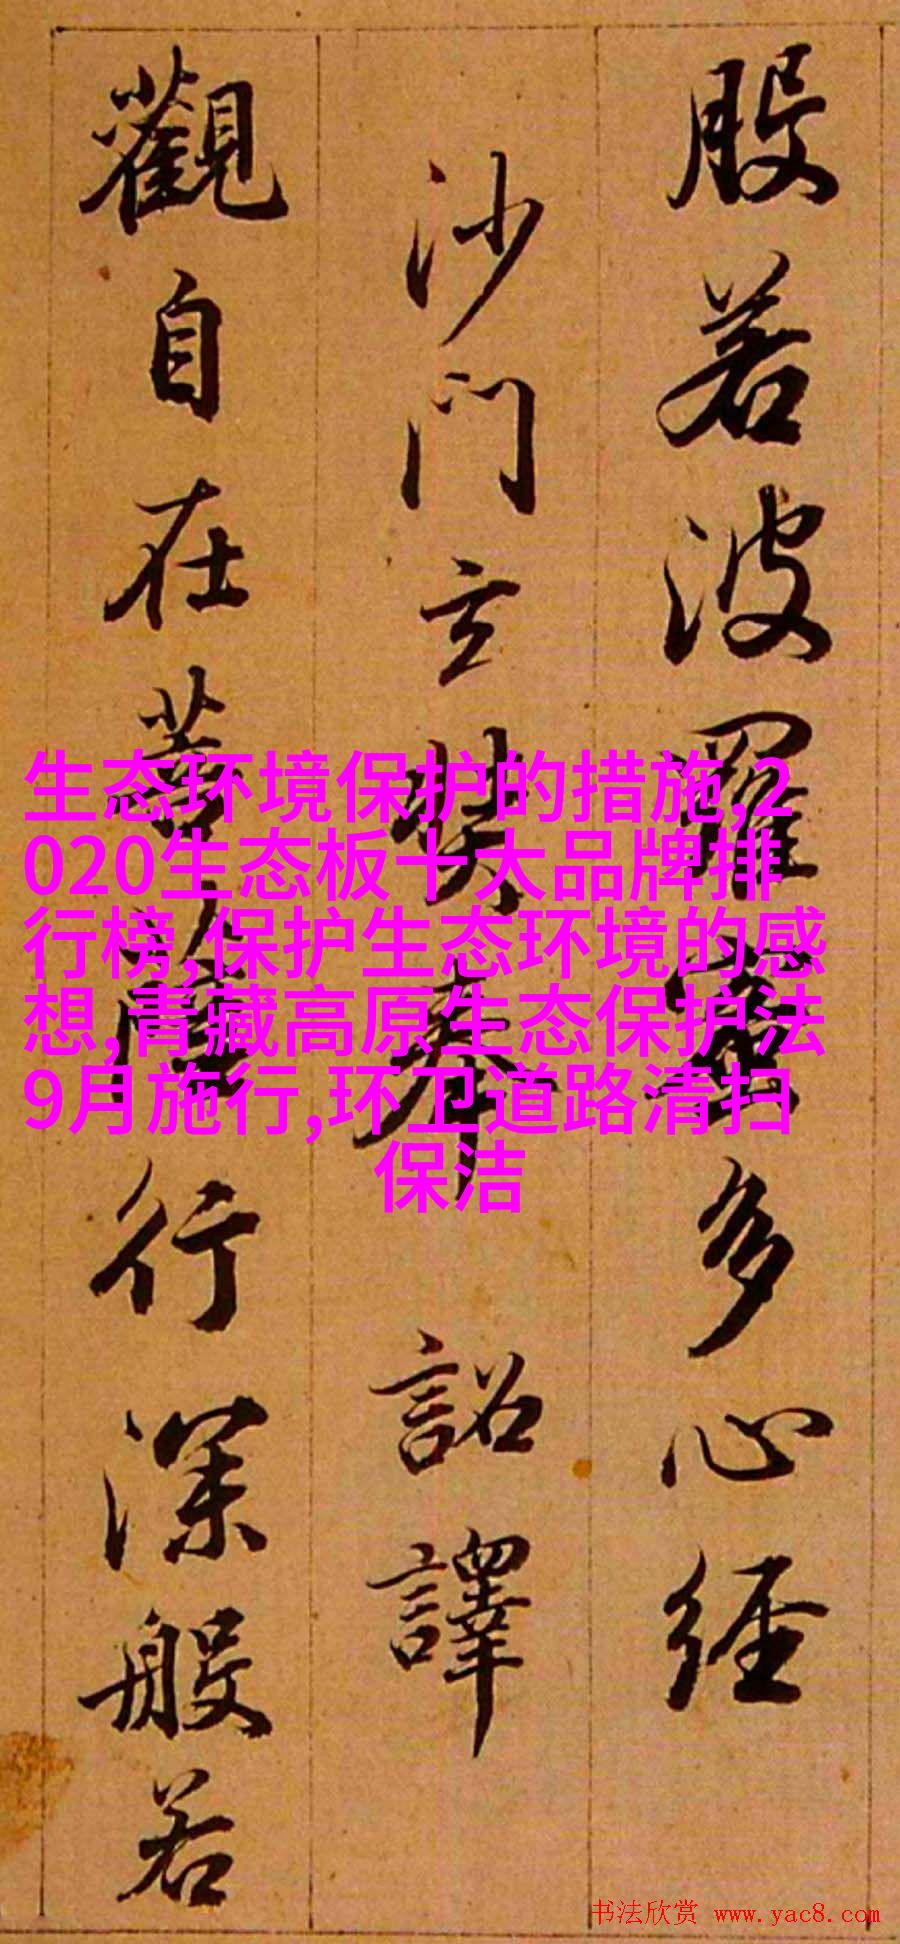 般若波羅蜜多心経
沙門玄奘奉 詔譯
觀自在菩薩行深般若
生态环境保护的措施,2
020生态板十大品牌排
行榜,保护生态环境的感
想,青藏高原生态保护法
9月施行,环卫道路清扫
保洁
书法欣赏 www.yac8.com